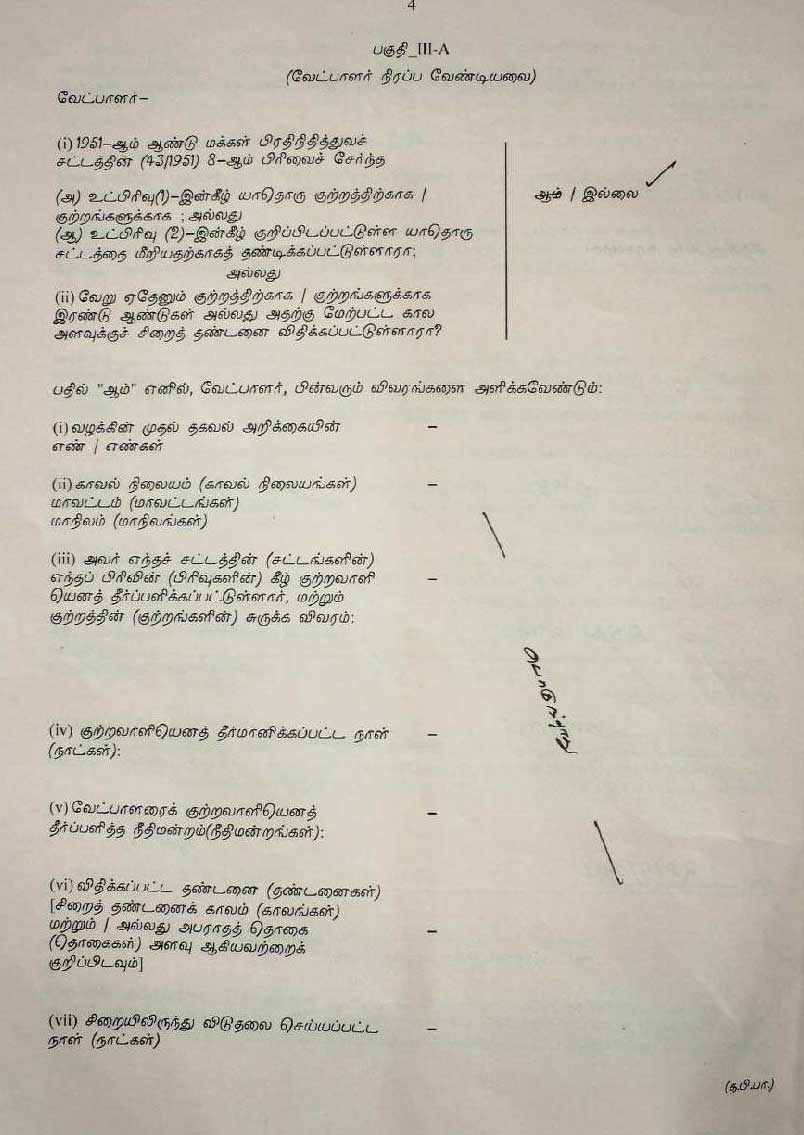 4
பகுதி_III-A
(வேட்பாளர் நிரப்ப வேண்டியவை)
வேட்பாளர்–
(i) 1951–ஆம் ஆண்டு மக்கள் பிரதிநிதித்துவச்
சட்டத்தின் (43/1951) 8–ஆம் பிரிவைச் சேர்ந்த
(அ) உட்பிரிவு(1)–இன்கீழ் யாதொரு குற்றத்திற்காக /
குற்றங்களுக்காக ; அல்லது
ஆம் / இல்லை ✓
(ஆ) உட்பிரிவு (2)–இன்கீழ் குறிப்பிடப்பட்டுள்ள யாதொரு
சட்டத்தை மீறியதற்காகத் தண்டிக்கப்பட்டுள்ளாரா;
அல்லது
(ii) வேறு ஏதேனும் குற்றத்திற்காக / குற்றங்களுக்காக
இரண்டு ஆண்டுகள் அல்லது அதற்கு மேற்பட்ட கால
அளவுக்குச் சிறைத் தண்டனை விதிக்கப்பட்டுள்ளாரா?
பதில் "ஆம்" எனில், வேட்பாளர், பின்வரும் விவரங்களை அளிக்கவேண்டும்:
(i) வழக்கின் முதல் தகவல் அறிக்கையின் –
எண் / எண்கள்
(ii) காவல் நிலையம் (காவல் நிலையங்கள்) –
மாவட்டம் (மாவட்டங்கள்)
மாநிலம் (மாநிலங்கள்)
(iii) அவர் எந்தச் சட்டத்தின் (சட்டங்களின்)
எந்தப் பிரிவின் (பிரிவுகளின்) கீழ் குற்றவாளி –
யெனத் தீர்ப்பளிக்கப்பட்டுள்ளார், மற்றும்
குற்றத்தின் (குற்றங்களின்) சுருக்க விவரம்:
(iv) குற்றவாளியெனத் தீர்மானிக்கப்பட்ட நாள் –
(நாட்கள்):
(v) வேட்பாளரைக் குற்றவாளியெனத் –
தீர்ப்பளித்த நீதிமன்றம்(நீதிமன்றங்கள்):
(vi) விதிக்கப்பட்ட தண்டனை (தண்டனைகள்)
[சிறைத் தண்டனைக் காலம் (காலங்கள்)
மற்றும் / அல்லது அபராதத் தொகை –
(தொகைகள்) அளவு ஆகியவற்றைக்
குறிப்பிடவும்]
(vii) சிறையிலிருந்து விடுதலை செய்யப்பட்ட –
நாள் (நாட்கள்)
(த.பி.பா.)